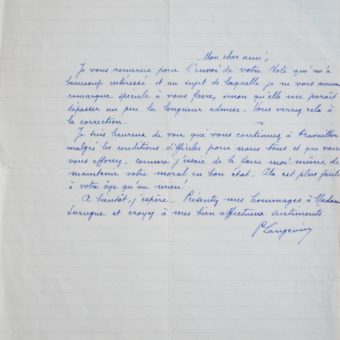 Mon cher ami,
Je vous remercie pour l'envoi de votre Note qui m'a
beaucoup intéressé et au sujet de laquelle je ne vois aucune
remarque spéciale à vous faire, sinon qu'elle me paraît
dépasser un peu la longueur admise. Vous verrez cela à
la correction.
Je suis heureux de voir que vous continuez à travailler
malgré les conditions difficiles pour nous tous et que vous
vous efforcez, comme j'essaie de le faire moi-même, de
maintenir votre moral en bon état. Cela est plus facile
à votre âge qu'au mien!
A bientôt, j'espère. Présentez mes hommages à Madame
et croyez à mes bien affectueux sentiments
P Langevin